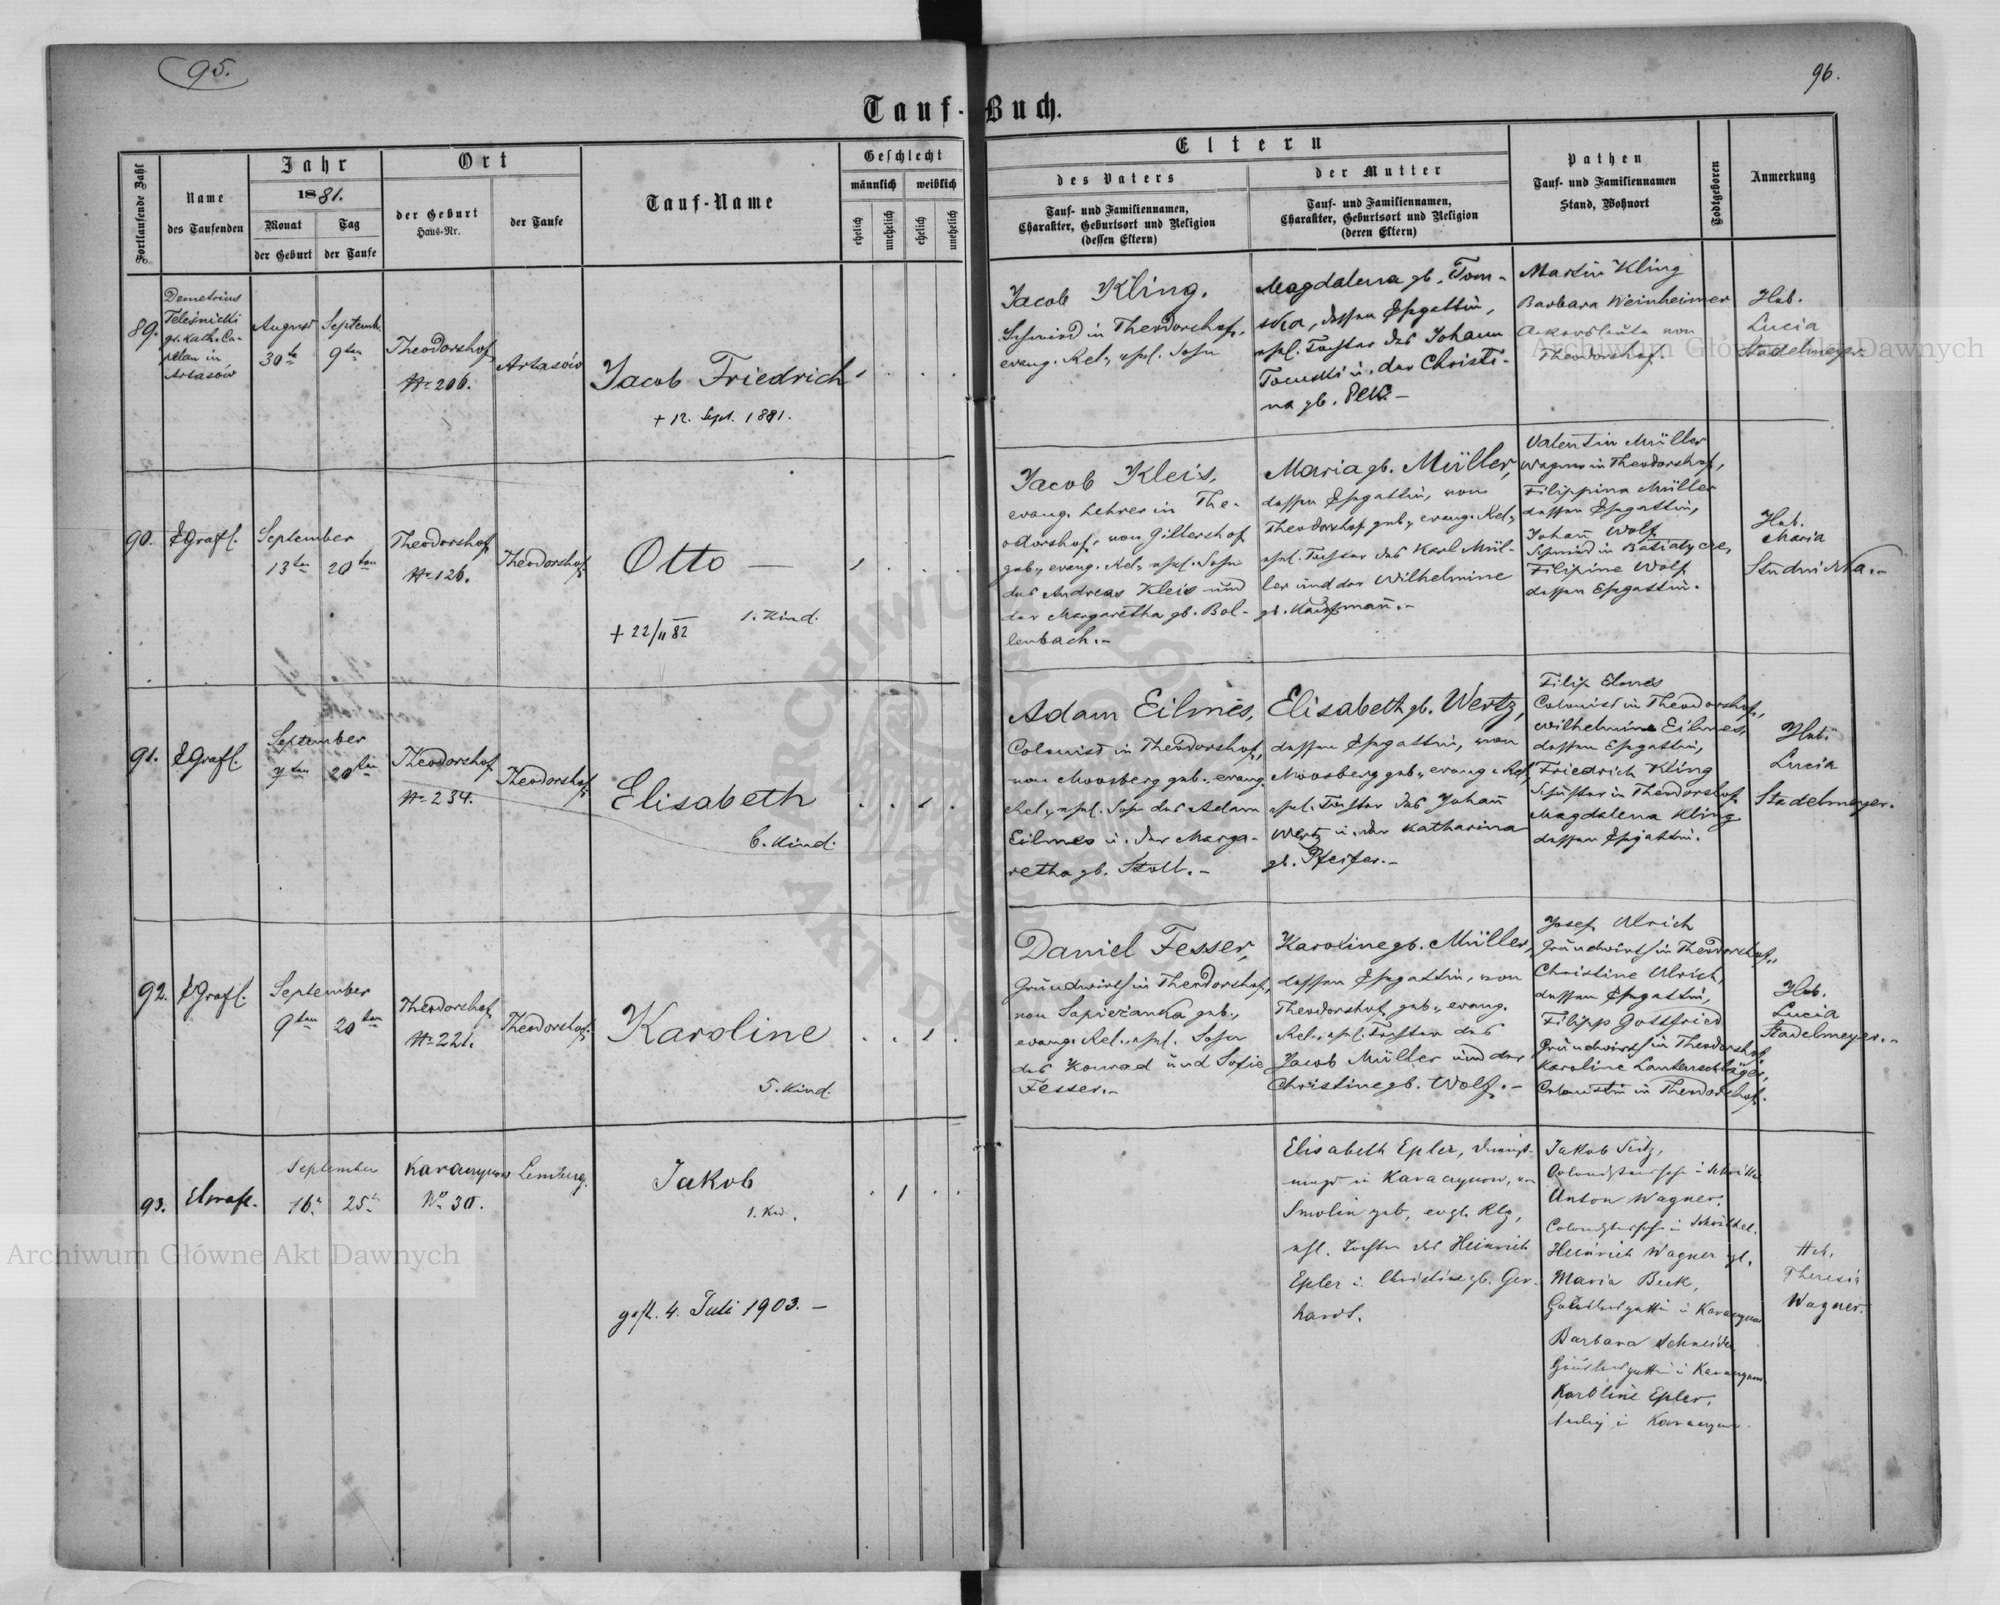 95.
96.
Tauf-Buch.
Fortlaufende Zahl
Name
des Taufenden
Jahr
1881.
Monat
Tag
der Geburt
der Taufe
Ort
der Geburt
Haus-Nr.
der Taufe
Tauf-Name
Geschlecht
männlich
weiblich
ehelich
unehelich
ehelich
unehelich
Eltern
des Vaters
Tauf- und Familiennamen,
Charakter, Geburtsort und Religion
(dessen Eltern)
der Mutter
Tauf- und Familiennamen,
Charakter, Geburtsort und Religion
(deren Eltern)
Pathen
Tauf- und Familiennamen
Stand, Wohnort
Todtgeboren
Anmerkung
89.
Demetrius
Teleśnicki
gr. kath. Ca-
petan in
Artasów
August
30te
Septemb.
9ten
Theodorshof
Nr 206.
Artasów
Jacob Friedrich
+ 12. Sept. 1881.
Jacob Kling.
Schmied in Theodorshof,
evang. Rel., ehel. Sohn
Magdalena gb. Tom-
ska, dessen Ehegattin,
ehel. Tochter des Johann
Tomski u. der Christi-
na gb.
Martin Kling
Barbara Weinheimer
Ackersleute von
Theodorshof.
Heb.
Lucia
Stadelmeyer.
90.
September
13ten 20ten
Theodorshof
Nr 126.
Theodorshof
Otto —
1. Kind.
+ 22/II 82
Jacob Kleis,
evang. Lehrer in The-
odorshof, von Gillershof
geb., evang. Rel., ehel. Sohn
des Andreas Kleis und
der Margaretha gb. Bol-
lenbach.-
Maria gb. Müller,
dessen Ehegattin, von
Theodorshof geb., evang. Rel.,
ehel. Tochter des Karl Mül-
ler und der Wilhelmine
gb. Kaufmann.-
Valentin Müller
Wagner in Theodorshof,
Filippina Müller
dessen Ehegattin,
Johann Wolf
Schmied in Batiatycze,
Filipine Wolf
dessen Ehegattin.
Heb.
Maria
Studnicka.-
91.
September
7ten 20ten
Theodorshof
Nr 234.
Theodorshof
Elisabeth
6. Kind.
Adam Eilmes,
Colonist in Theodorshof,
von Moosberg geb., evang.
Rel., ehel. Sohn des Adam
Eilmes u. der Marga-
retha gb. Stoll.-
Elisabeth gb. Wertz,
dessen Ehegattin, von
Moosberg geb., evang. Rel,
ehel. Tochter des Johann
Wertz u. der Katharina
gb. Pfeifer.-
Filip Elmes
Colonist in Theodorshof,
Wilhelmine Eilmes,
dessen Ehegattin,
Friedrich Kling
Schuster in Theodorshof
Magdalena Kling
dessen Ehegattin.
Heb.
Lucia
Stadelmeyer.
92.
September
9ten 20ten
Theodorshof
Nr 221.
Theodorshof
Karoline
5. Kind.
Daniel Fesser,
Grundwirth in Theodorshof,
von Sapiezanka geb.,
evang. Rel., ehel. Sohn
des Konrad und Sofie
Fesser.-
Karoline gb. Müller,
dessen Ehegattin, von
Theodorshof geb., evang.
Rel., ehel. Tochter des
Jacob Müller und der
Christine gb. Wolf.-
Josef Ulrich
Grundwirth in Theodorshof,
Christine Ulrich,
dessen Ehegattin,
Filipp Gottfried
Grundwirth in Theodorshof,
Karoline Lautenschläger,
Colonistin in Theodorshof.
Heb.
Lucia
Stadelmeyer.-
93.
September
16. 25.
Karaczynow
No 30.
Lemberg.
Jakob
1. Kd.
gest. 4. Juli 1903. —
Elisabeth Epler, Dienst-
magd in Karaczynow, von
Smolin geb, evgl. Rlg,
ehl. Tochter des Heinrich
Epler u. Christine gb. Ger-
hardt.
Jakob
Anton Wagner,
Heinrich Wagner
Maria Beck,
Barbara Schneider,
Karoline Epler,
ledig in Karaczynow.
Heb.
Theresia
Wagner.
Archiwum Główne Akt Dawnych
Archiwum Główne Akt Dawnych